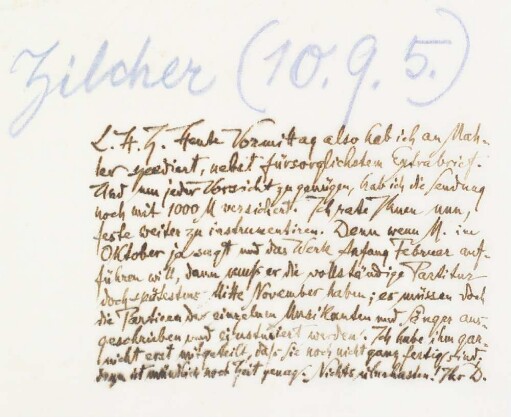 Zilcher (10.9.5.)
L. H. Z. Heute Vormittag also hab ich an Mah-
ler spediert, nebst fürsorglichstem Extrabrief.
Und um jeder Vorsicht zu genügen, hab ich die Sendung
noch mit 1000 M versichert. Ich rate Ihnen nun,
feste weiter zu instrumentiren. Denn wenn M. im
Oktober ja sagt und das Werk Anfang Februar auf-
führen will, dann muß er die vollständige Partitur
doch spätestens Mitte November haben; es müssen doch
die Partieen der einzelnen Musikanten und Sänger aus-
geschrieben und einstudiert werden. Ich habe ihm gar
nicht erst mitgeteilt, daß Sie noch nicht ganz fertig sind;
denn ist mündlich noch Zeit genug. Nichts überhasten! Ihr D.